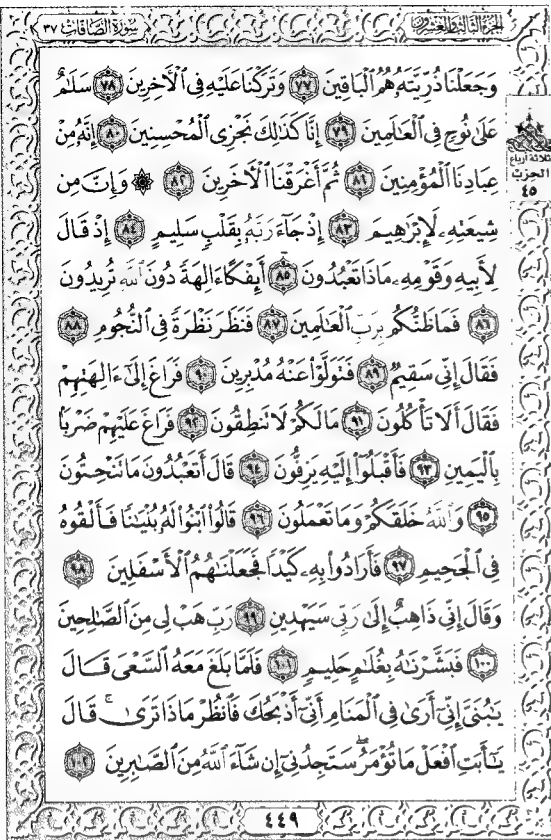 الجزء الثالث والعشرون
سورة الصافات ٣٧
وَجَعَلْنَا ذُرِّيَّتَهُۥ هُمُ ٱلْبَاقِينَ ٧٧ وَتَرَكْنَا عَلَيْهِ فِى ٱلْأَخِرِينَ ٧٨ سَلَٰمٌ
عَلَىٰ نُوحٍ فِى ٱلْعَٰلَمِينَ ٧٩ إِنَّا كَذَٰلِكَ نَجْزِى ٱلْمُحْسِنِينَ ٨٠ إِنَّهُۥ مِنْ
عِبَادِنَا ٱلْمُؤْمِنِينَ ٨١ ثُمَّ أَغْرَقْنَا ٱلْأَخَرِينَ ٨٢ ۞ وَإِنَّ مِن
شِيعَتِهِۦ لَإِبْرَٰهِيمَ ٨٣ إِذْ جَآءَ رَبَّهُۥ بِقَلْبٍ سَلِيمٍ ٨٤ إِذْ قَالَ
لِأَبِيهِ وَقَوْمِهِۦ مَاذَا تَعْبُدُونَ ٨٥ أَئِفْكًا ءَالِهَةً دُونَ ٱللَّهِ تُرِيدُونَ
٨٦ فَمَا ظَنُّكُم بِرَبِّ ٱلْعَٰلَمِينَ ٨٧ فَنَظَرَ نَظْرَةً فِى ٱلنُّجُومِ ٨٨
فَقَالَ إِنِّى سَقِيمٌ ٨٩ فَتَوَلَّوْا۟ عَنْهُ مُدْبِرِينَ ٩٠ فَرَاغَ إِلَىٰٓ ءَالِهَتِهِمْ
فَقَالَ أَلَا تَأْكُلُونَ ٩١ مَا لَكُمْ لَا تَنطِقُونَ ٩٢ فَرَاغَ عَلَيْهِمْ ضَرْبًۢا
بِٱلْيَمِينِ ٩٣ فَأَقْبَلُوٓا۟ إِلَيْهِ يَزِفُّونَ ٩٤ قَالَ أَتَعْبُدُونَ مَا تَنْحِتُونَ
٩٥ وَٱللَّهُ خَلَقَكُمْ وَمَا تَعْمَلُونَ ٩٦ قَالُوا۟ ٱبْنُوا۟ لَهُۥ بُنْيَٰنًا فَأَلْقُوهُ
فِى ٱلْجَحِيمِ ٩٧ فَأَرَادُوا۟ بِهِۦ كَيْدًا فَجَعَلْنَٰهُمُ ٱلْأَسْفَلِينَ ٩٨
وَقَالَ إِنِّى ذَاهِبٌ إِلَىٰ رَبِّى سَيَهْدِينِ ٩٩ رَبِّ هَبْ لِى مِنَ ٱلصَّٰلِحِينَ
١٠٠ فَبَشَّرْنَٰهُ بِغُلَٰمٍ حَلِيمٍ ١٠١ فَلَمَّا بَلَغَ مَعَهُ ٱلسَّعْىَ قَالَ
يَٰبُنَىَّ إِنِّىٓ أَرَىٰ فِى ٱلْمَنَامِ أَنِّىٓ أَذْبَحُكَ فَٱنظُرْ مَاذَا تَرَىٰ ۚ قَالَ
يَٰٓأَبَتِ ٱفْعَلْ مَا تُؤْمَرُ ۖ سَتَجِدُنِىٓ إِن شَآءَ ٱللَّهُ مِنَ ٱلصَّٰبِرِينَ ١٠٢
ثلاثة أرباع
الحزب
٤٥
٤٤٩